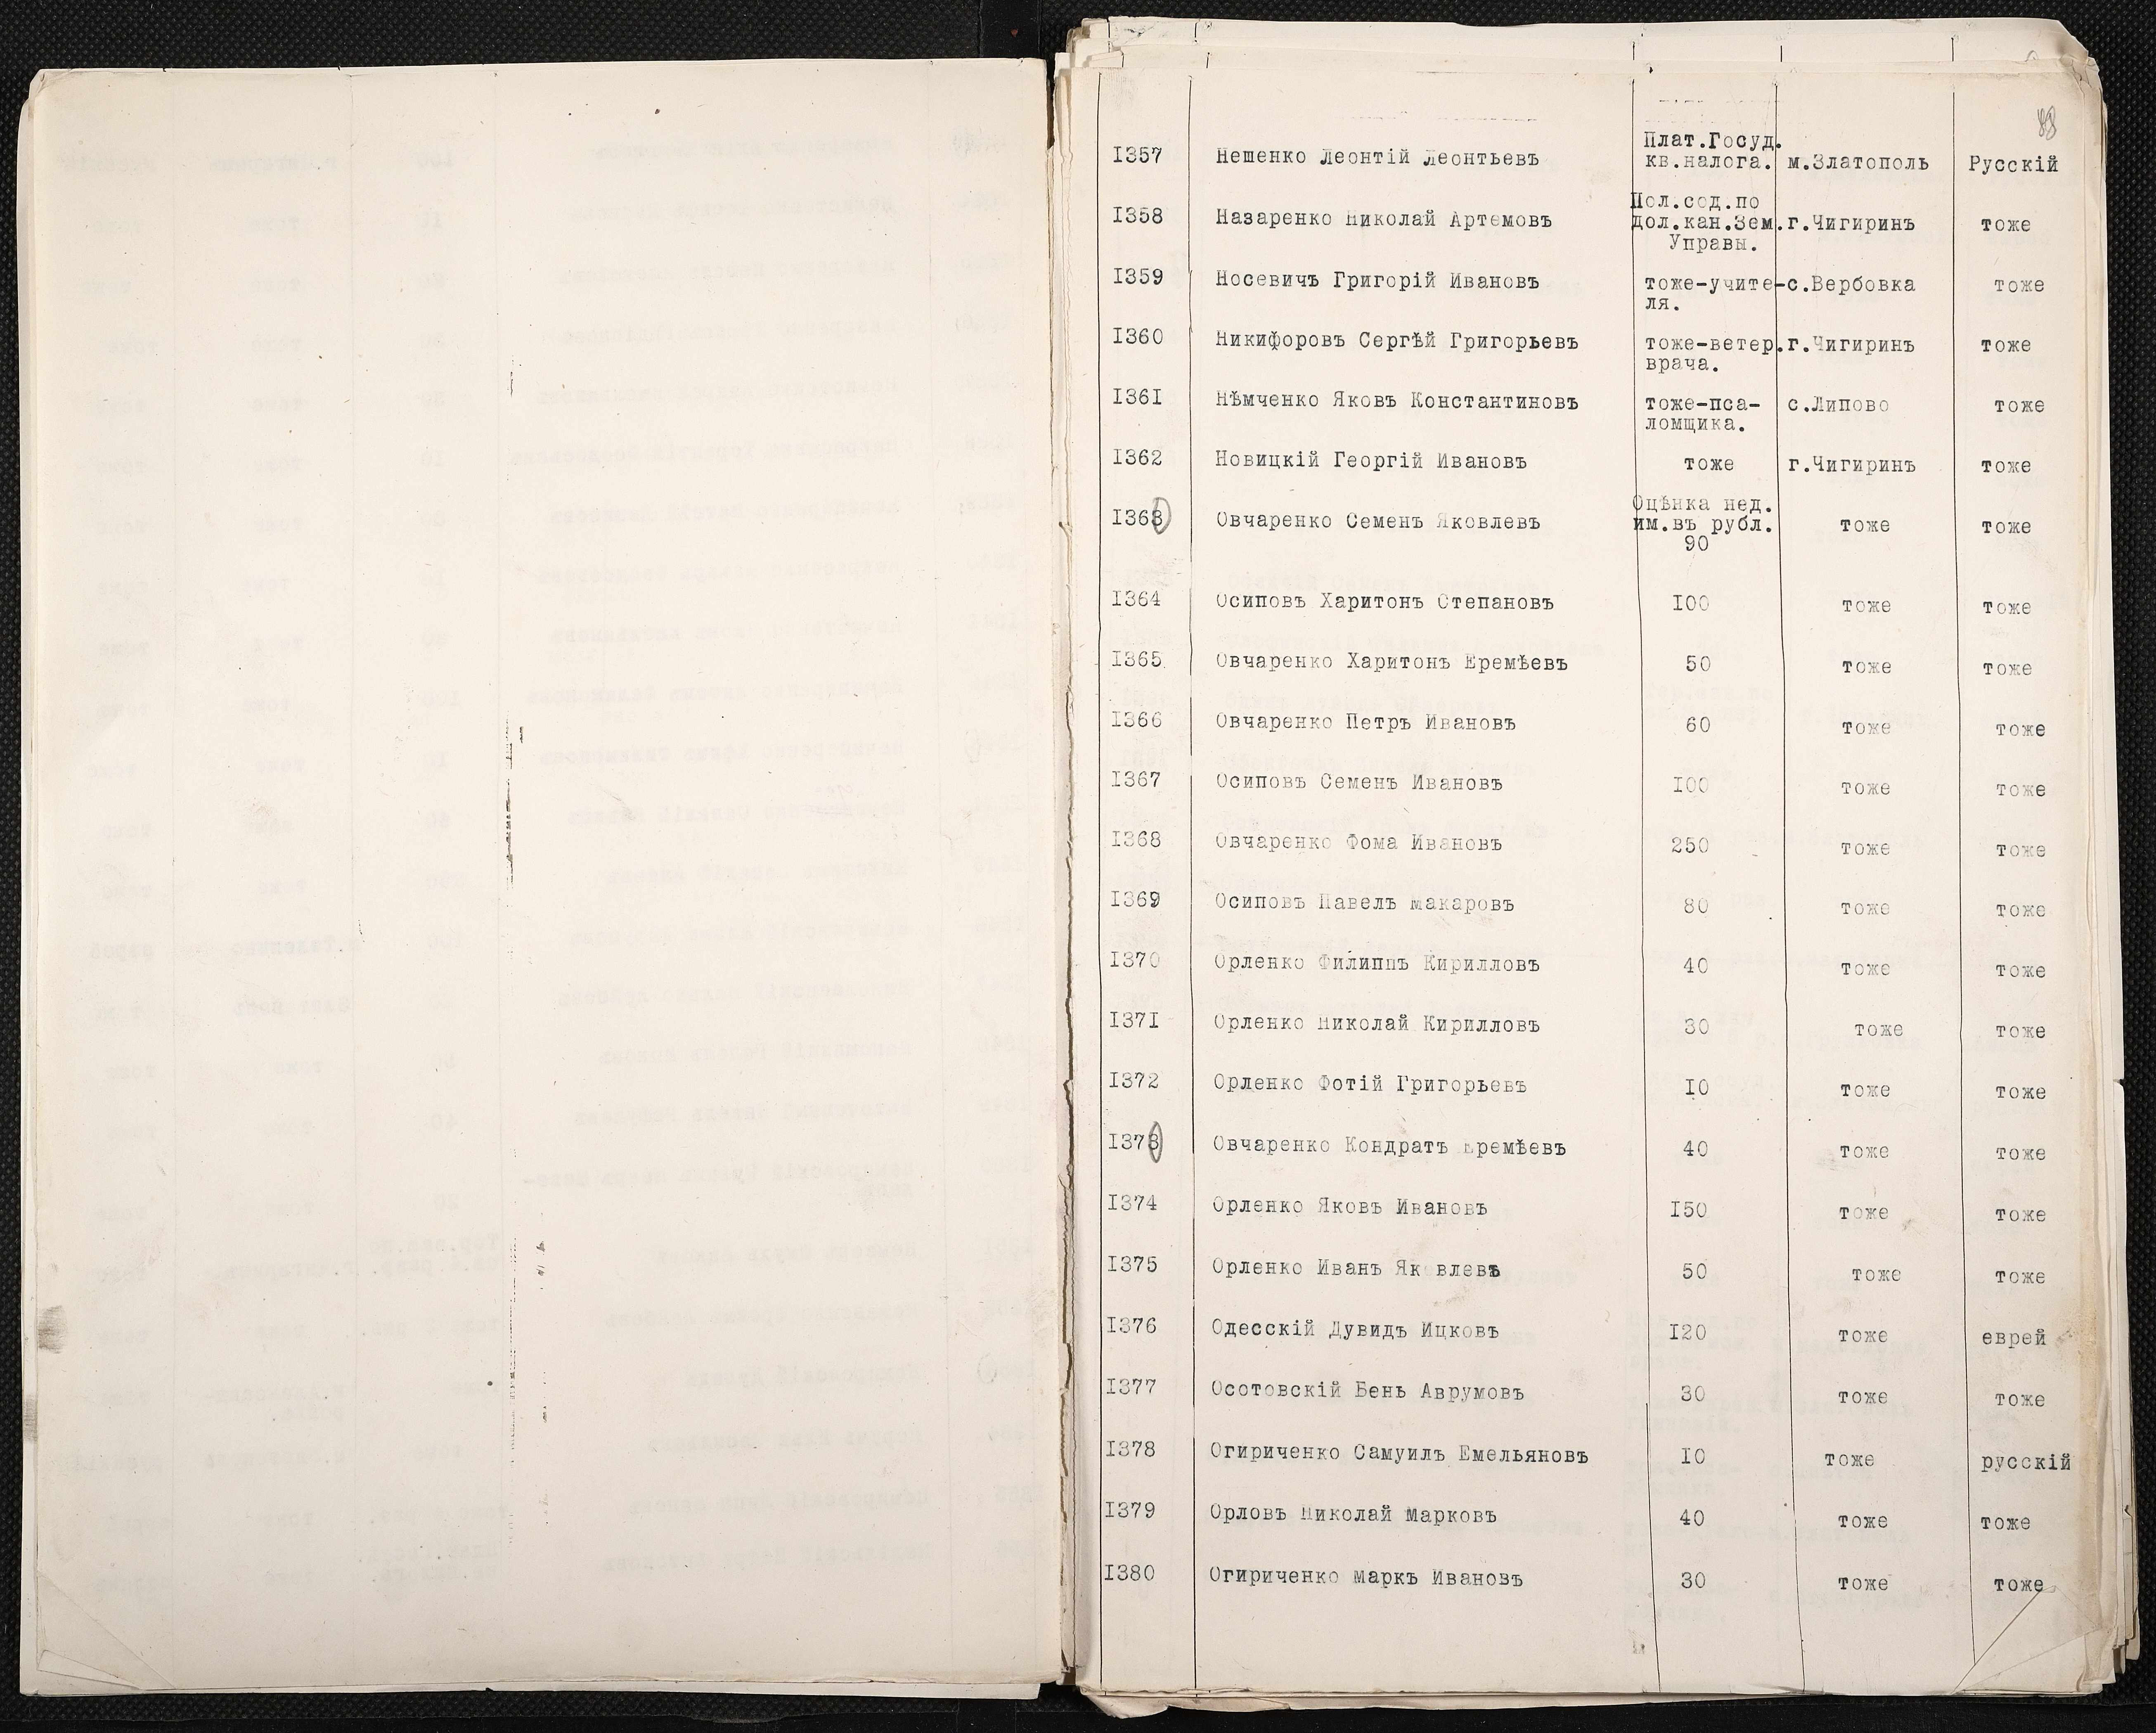 88
Плат.Госуд.
I357 Нешенко Леонтій Леонтьевъ кв.налога. м.Златополь Русскій
Пол.сод.по
I358 Назаренко Николай Артемовъ Дол.кан.Зем. г.Чигиринъ тоже
Управы.
I359 Носевичъ Григорій Ивановъ тоже-учите- с.Вербовка тоже
ля.
I360 Никифоровъ Сергѣй Григорьевъ тоже-ветер. г.Чигиринъ тоже
врача.
I36I Нѣмченко Яковъ Константиновъ тоже-пса- с.Липово тоже
ломщика.
I362 Новицкій Георгій Ивановъ тоже г.Чигиринъ тоже
Оцѣнка нед.
I363 Овчаренко Семенъ Яковлевъ им.въ рубл. тоже тоже
90
I364 Осиповъ Харитонъ Степановъ I00 тоже тоже
I365 Овчаренко Харитонъ Еремѣевъ 50 тоже тоже
I366 Овчаренко Петръ Ивановъ 60 тоже тоже
I367 Осиповъ Семенъ Ивановъ I00 тоже тоже
I368 Овчаренко Фома Ивановъ 250 тоже тоже
I369 Осиповъ Павелъ Макаровъ 80 тоже тоже
I370 Орленко Филиппъ Кирилловъ 40 тоже тоже
I37I Орленко Николай Кирилловъ 30 тоже тоже
I372 Орленко Фотій Григорьевъ I0 тоже тоже
I373 Овчаренко Кондратъ Еремѣевъ 40 тоже тоже
I374 Орленко Яковъ Ивановъ I50 тоже тоже
I375 Орленко Иванъ Як влевъ 50 тоже тоже
I376 Одесскій Дувидъ Ицковъ I20 тоже еврей
I377 Осотовскій Бень Аврумовъ 30 тоже тоже
I378 Огириченко Самуилъ Емельяновъ I0 тоже русскій
I379 Орловъ Николай Марковъ 40 тоже тоже
I380 Огириченко Маркъ Ивановъ 30 тоже тоже